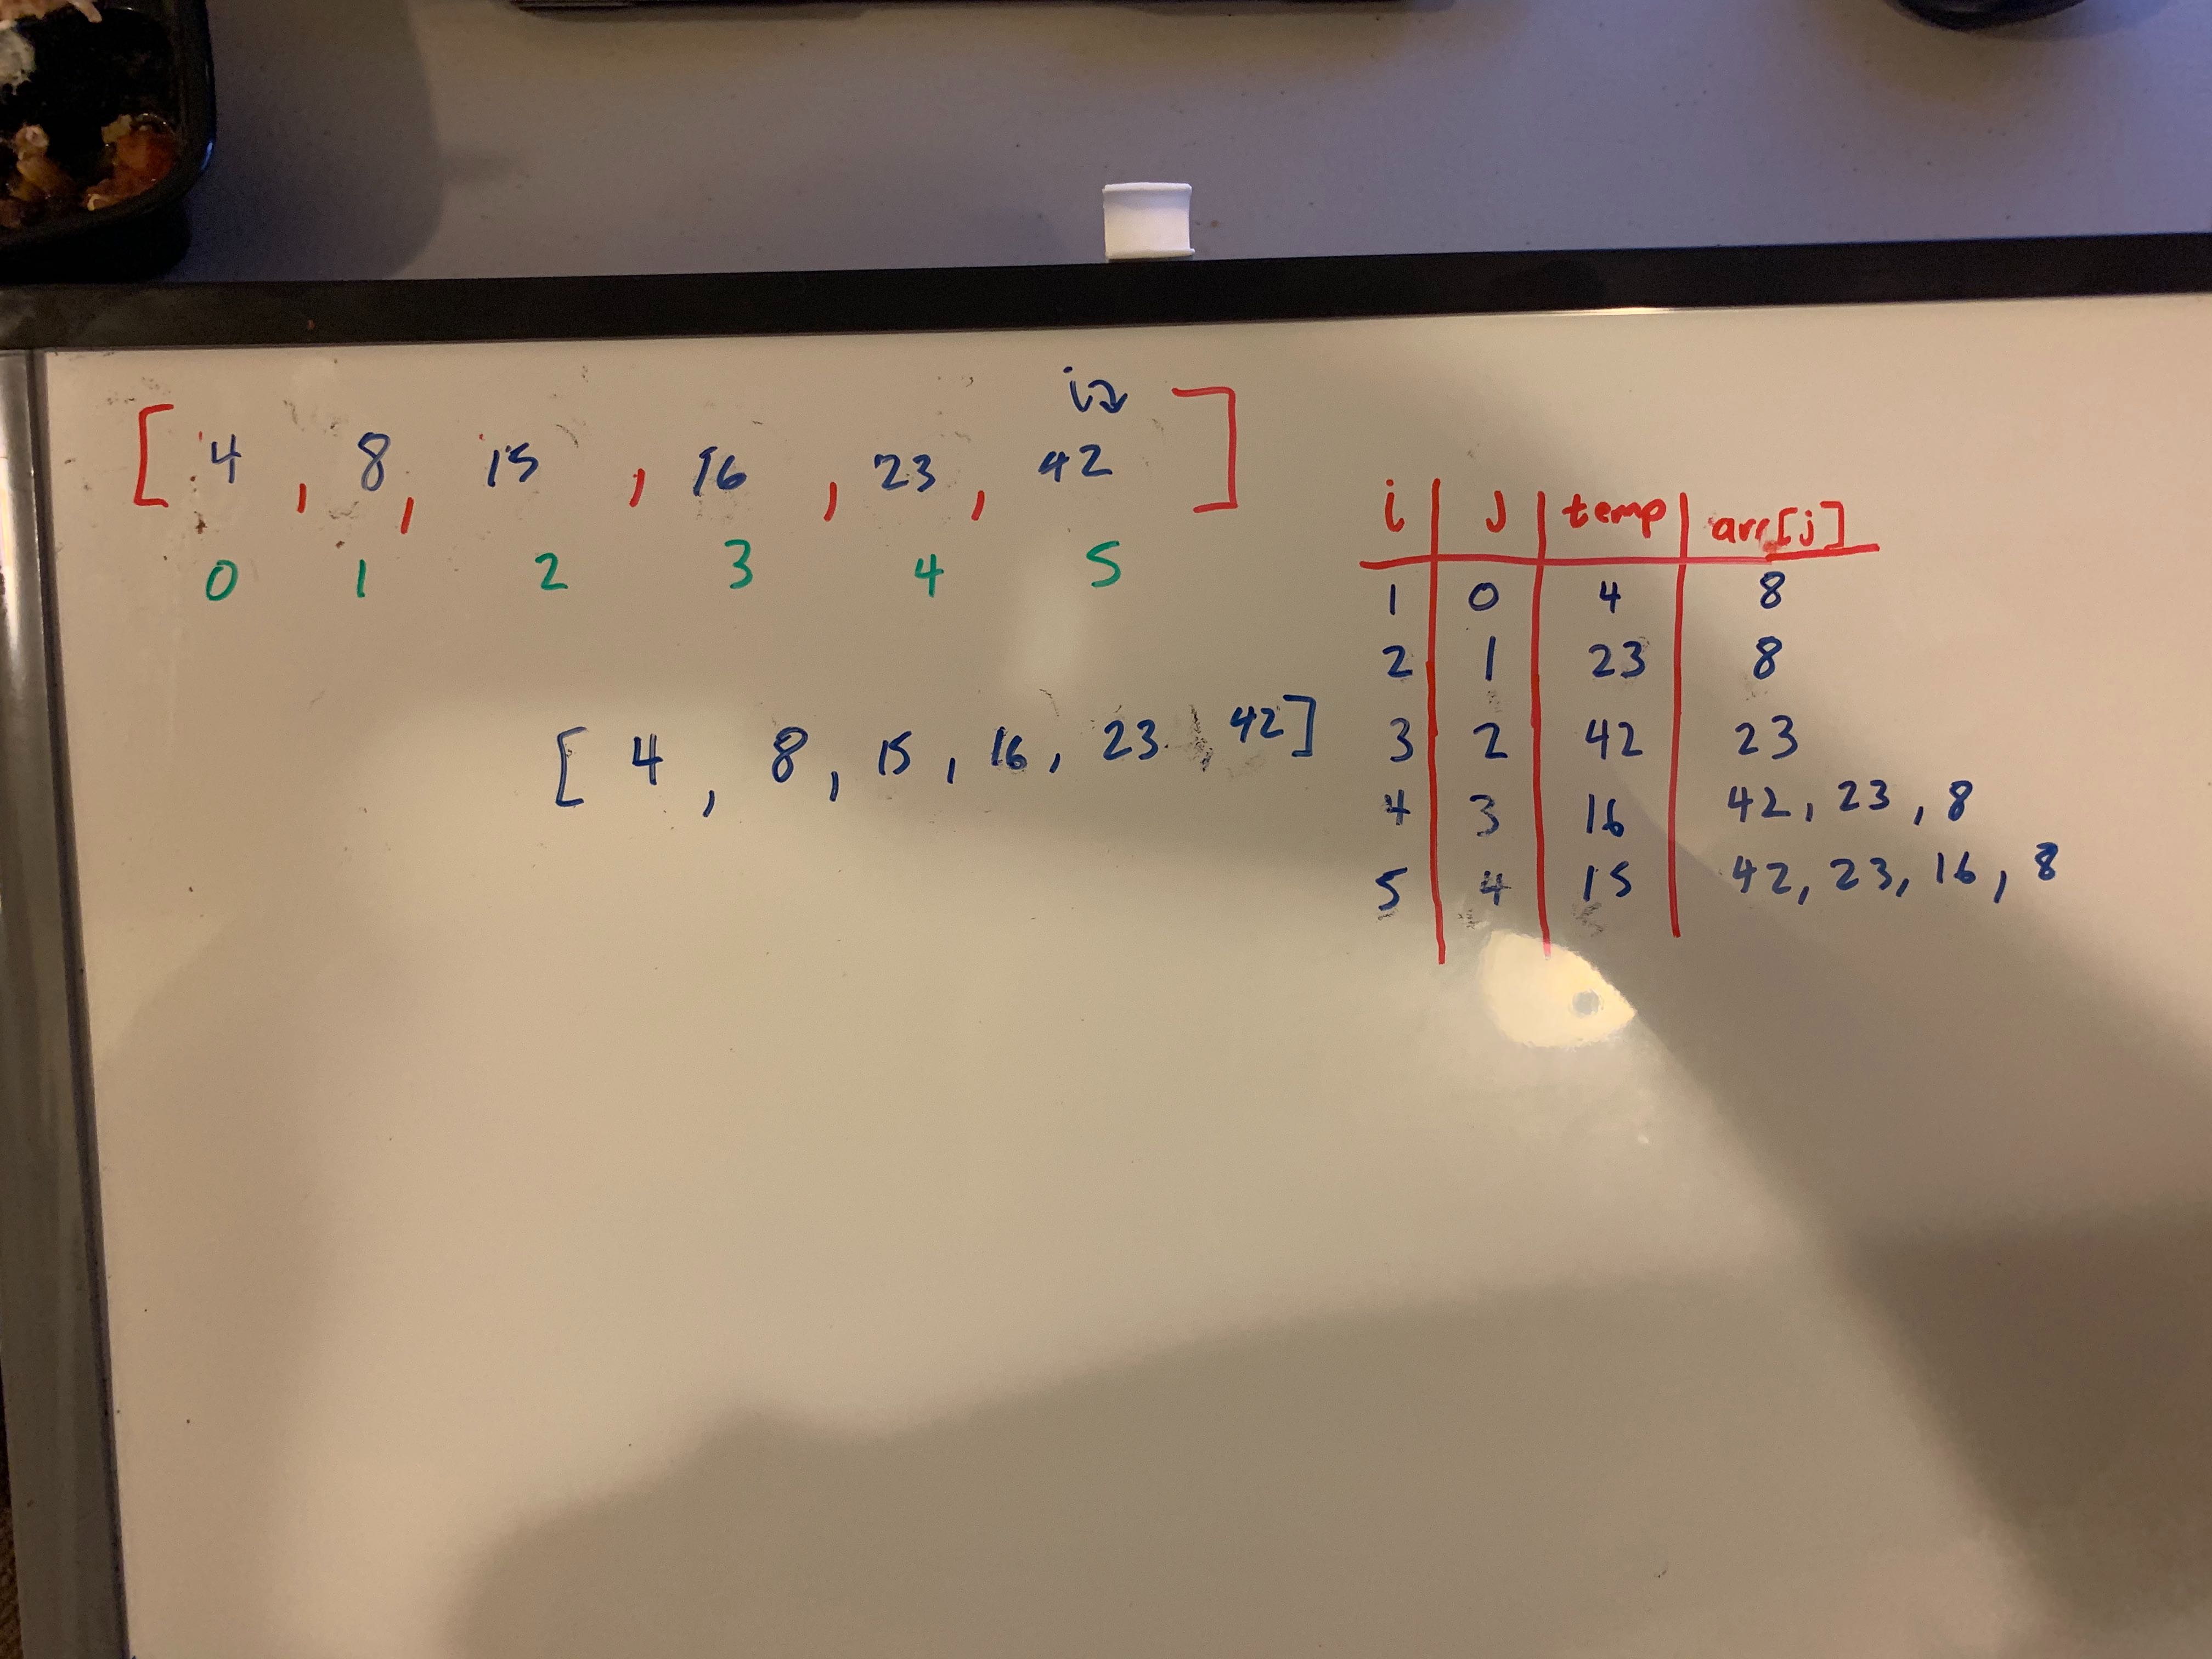 i
[ 4 , 8 , 15 , 16 , 23 , 42 ]
0 1 2 3 4 5
[ 4 , 8 , 15 , 16 , 23 , 42 ]
i j temp arr[j]
1 0 4 8
2 1 23 8
3 2 42 23
4 3 16 42, 23, 8
5 4 15 42, 23, 16, 8